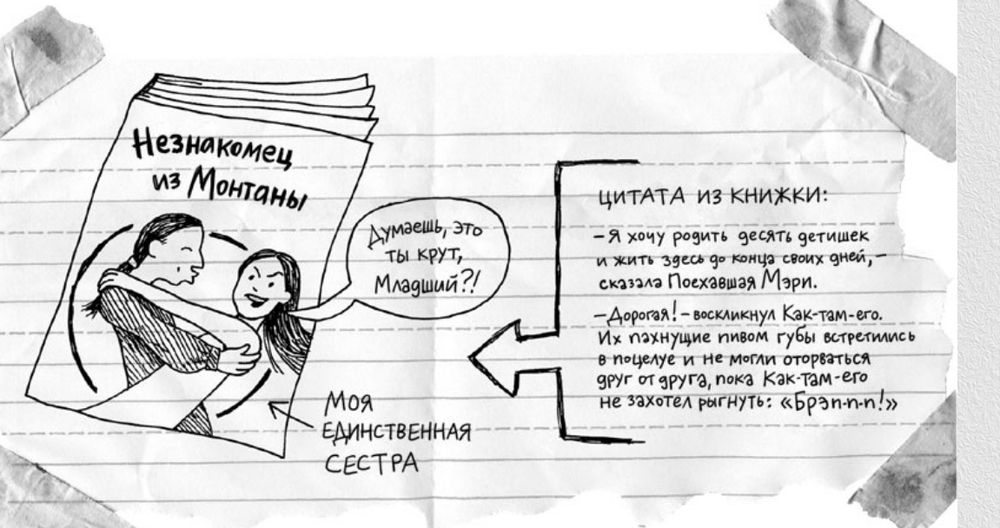 Незнакомец
из Монтаны
Думаешь, это
ты крут,
Младший?!
Моя
единственная
сестра
ЦИТАТА ИЗ КНИЖКИ:
– Я хочу родить десять детишек
и жить здесь до конца своих дней, –
сказала Поехавшая Мэри.
– Дорогая! – воскликнул Как-там-его.
Их пахнущие пивом губы встретились
в поцелуе и не могли оторваться
друг от друга, пока Как-там-его
не захотел рыгнуть: «Брэп-п-п!»